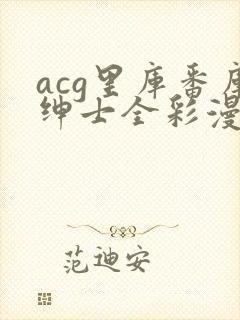 acg里库番库
绅士全彩漫
范迪安